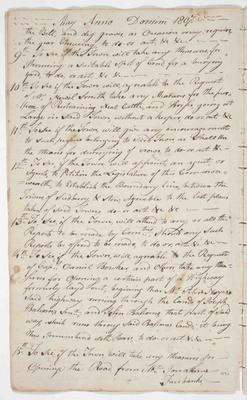 May Anno Domini 180
the Bell, and dig graves as Occasion may require
the year Ensuing, to do or act &c &c
9th To See if the Town will take any Measures for
Procuring a Suitable Spot of Land for a burying
yard, to do or act, &c &c
10th To See if the Town will agreeable to the Request
of Newell Smith take any Measures for the pur-
pose of Restraining Neat Cattle, and Hogs, going at
Large in said Town, without a keeper, do or act &c
11th To See if the Town will give any encouragements
to Such persons belonging to said Town as Shall take
the Means for destroying of crows to do or act &c
12th To See if the Town will appoint an agent or
Agents to Petition the Legislature of this Common-
wealth, to Establish the Boundary line, between the
Towns of Sudbury & Stow, agreeable to the last plans
taken of Said Towns, do or act &c &c
13th To See if the Town, will attend to any or all the
Reports to be made, by Comtees, Should any Such
Reports be offered to be made, to do or act &c &c
14th To See if the Town, will agreeable to the Request
of Capt Daniel Bowker and Others take any Mea-
sures for Opening a certain part of a Highway
formerly laid out, beginning near Mr
Said highway running through the Lands of Joseph
Balcom Junr, and John Balcom, that part of Said
way which runs through Said Balcoms Land, it being
then Incumbered with Bars, to do or act &c &c
15th To See if the Town will take any Measures for
Opening the Road from Mr Jonathan
Fairbanks